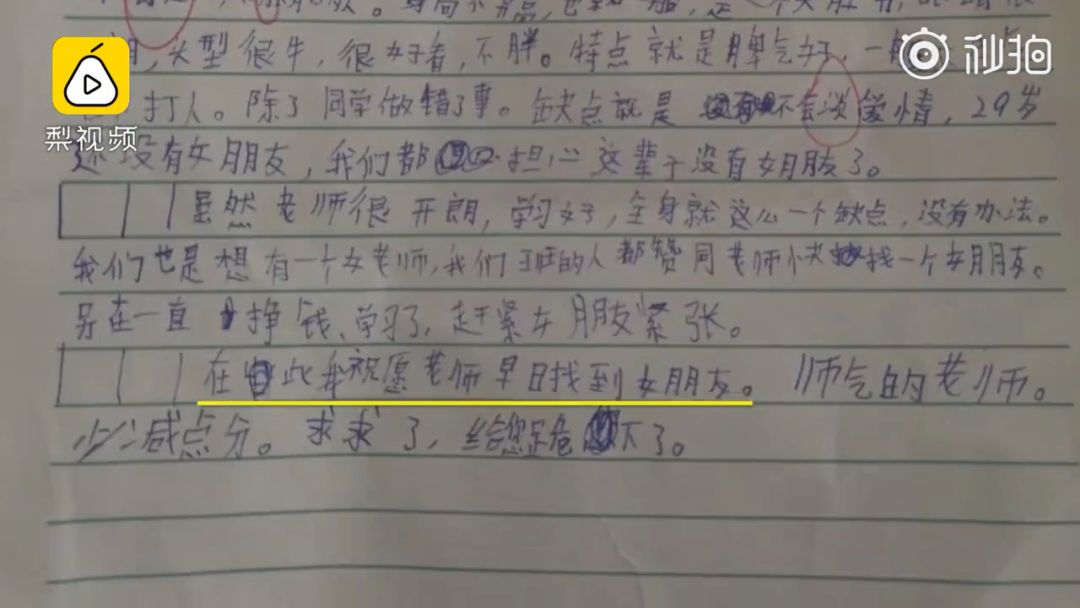 梨视频
秒拍
很好看，不胖。特点就是脾气好，一
打人。除了同学做错了事。缺点就是 不会谈爱情，29岁
还没有女朋友，我们都 担心这辈子没有女朋友了。
虽然老师很开朗，学习好，全身就这么一个缺点，没有办法。
我们也是想有一个女老师，我们班的人都赞同老师快找一个女朋友。
另在一直 挣钱、学习了，赶紧女朋友紧张。
在 此我祝愿老师早日找到女朋友。 师气的老师。
少减点分。求求了，给您